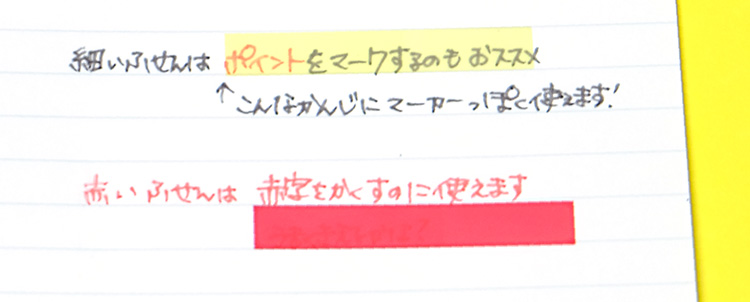 細いふせんは ポイントをマークするのもおススメ
↑こんなかんじにマーカーっぽく使えます!
赤いふせんは 赤字をかくすのに使えます